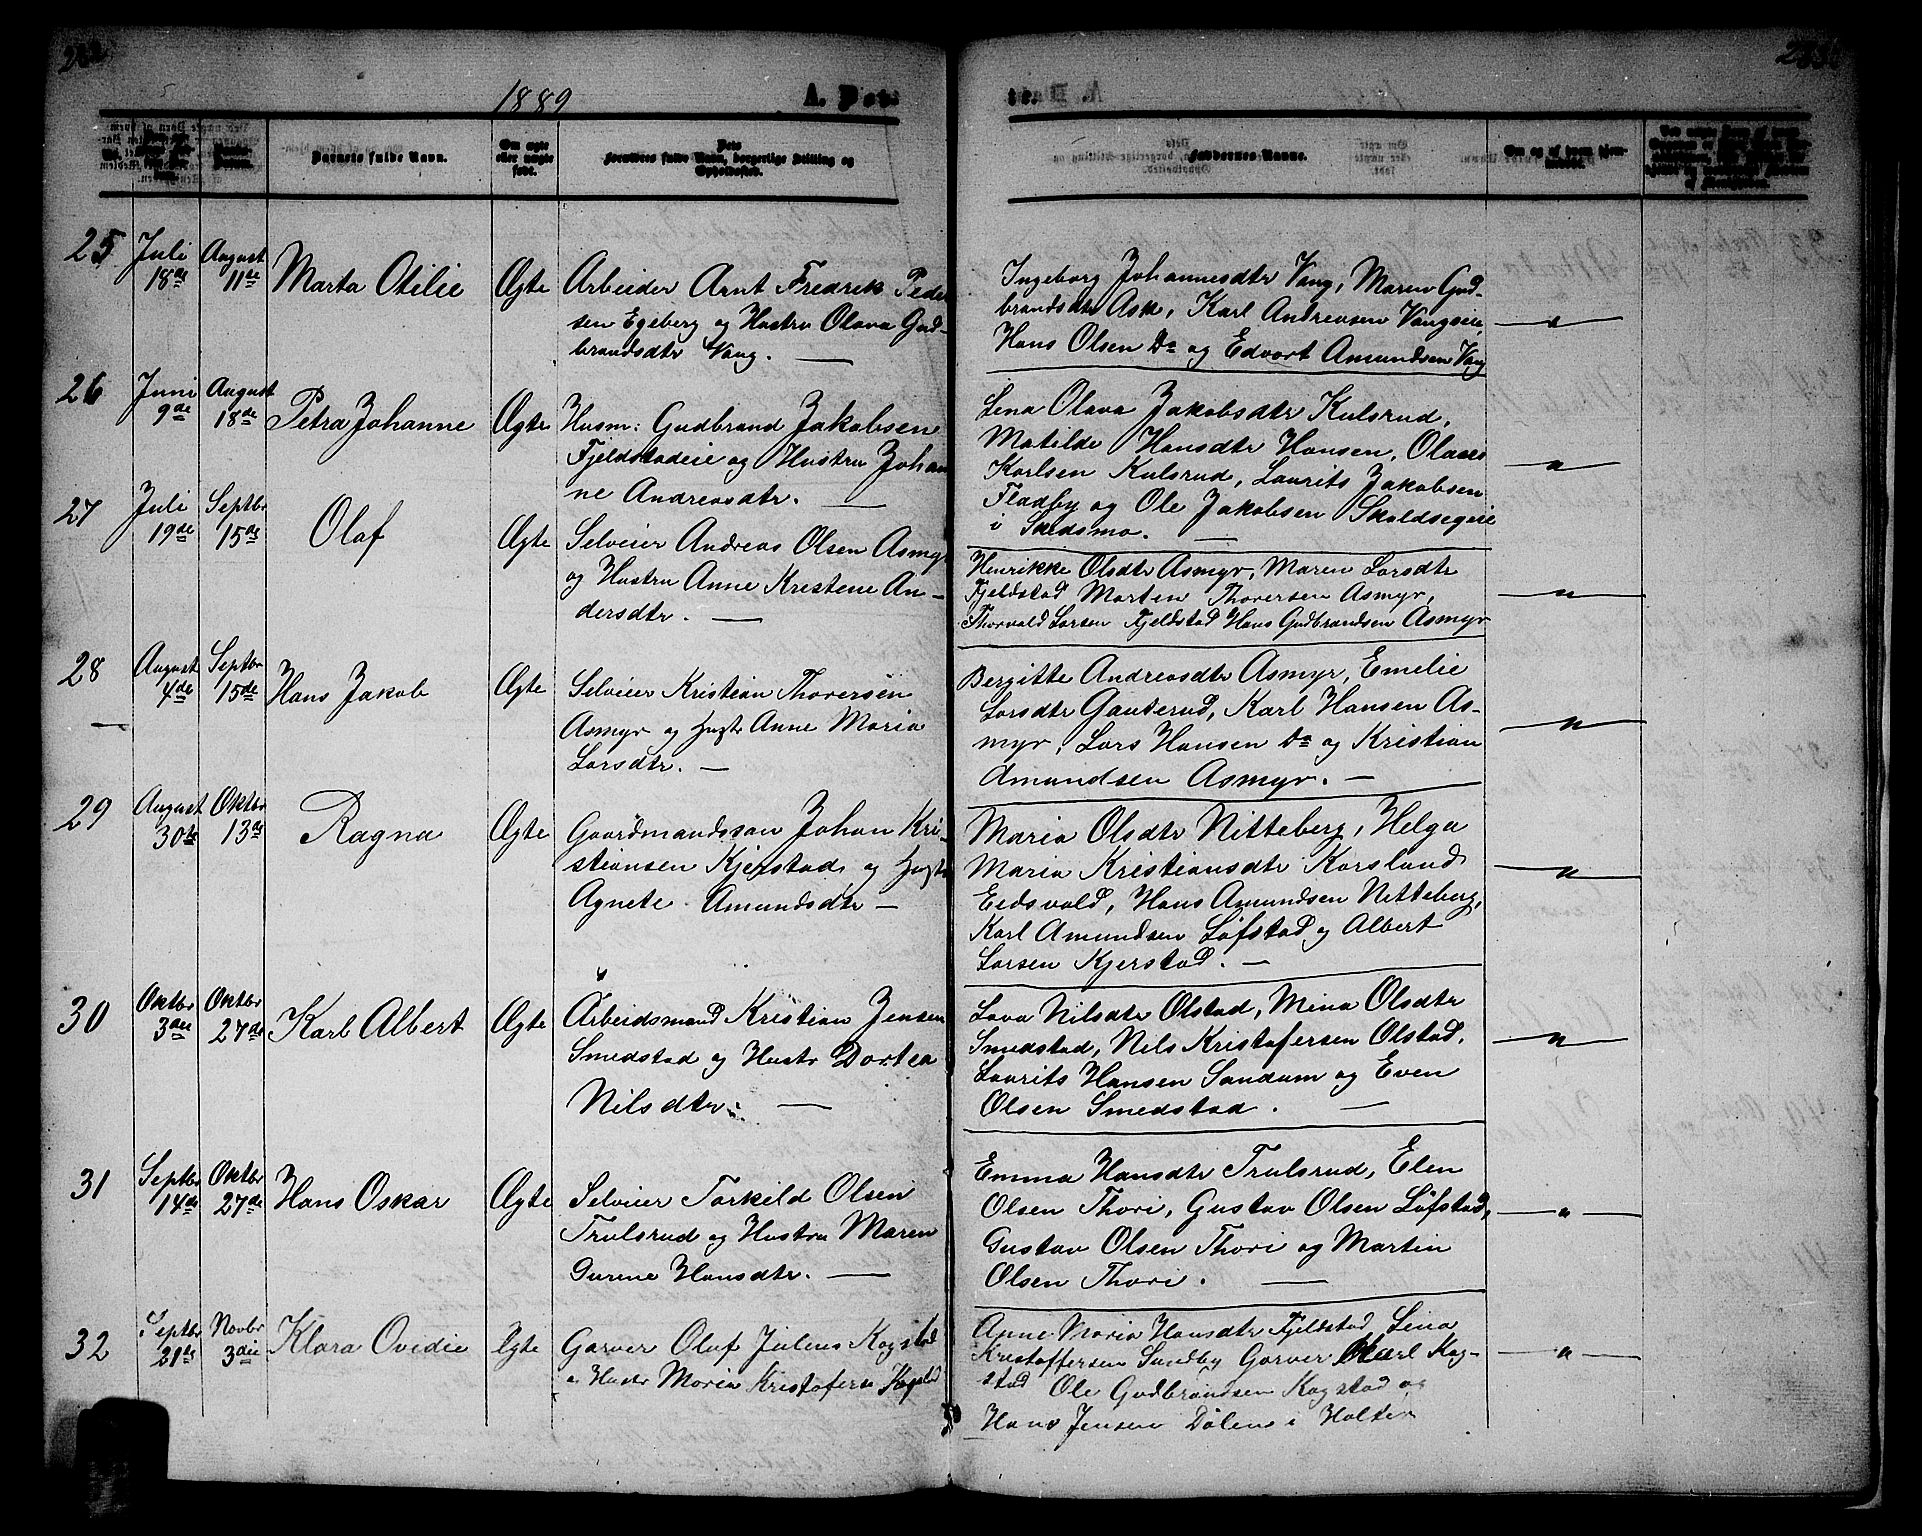 1889
A. Dø
Barnets fulde Navn.
Om ægte eller uægte født.
Forældres fulde Navn, borgerlige Stilling og Opholdssted.
Faddernes Navne.
25 Juli 18de August 11te Marta Otilie Ægte Arbeider Arnt Fredrik Peder
sen Egeberg og Hustru Olava Gud-
brandsdtr Vang. —
Ingeborg Johannesdtr Vang, Maren Gud-
brandsdtr Ask, Karl Andreasen Vangseie,
Hans Olsen Do og Edvart Amundsen Vang
26 Juni 9de August 18de Petra Johanne Ægte Husm: Gudbrand Jakobsen
Fjeldstadeie og Hustru Johan
ne Andreasdtr. —
Lina Olava Jakobsdtr Kulsrud,
Matilde Hansdtr Hansen, Olaves
Karlsen Kulsrud, Laurits Jakobsen
Fladby og Ole Jakobsen
i Skedsmo. —
27 Juli 19de Septbr 15de Olaf Ægte Selveier Andreas Olsen Asmyr
og Hustru Anne Kristene An-
dersdtr. —
Henrikke Olsdtr Asmyr, Maren Larsdtr
Fjeldstad Morten Thoversen Asmyr,
Thorvald Larsen Fjeldstad Hans Gudbrandsen Asmyr
28 August 4de Septbr 15de Hans Jakob Ægte Selveier Kristian Thoversen
Asmyr og Hustr Anne Maria
Larsdtr. —
Bergitte Andreasdtr Asmyr, Emelie
Larsdtr Gauterud, Karl Hansen As-
myr, Lars Hansen Do og Kristian
Amundsen Asmyr. —
29 August 30te Oktbr 13de Ragna Ægte Gaardmandssøn Johan Kri-
stiansen Kjerstad og Hustr
Agnete Amundsdtr —
Maria Olsdtr Nitteberg, Helga
Maria Kristiansdtr Korslund
Eidsvold, Hans Amundsen Nitteberg,
Karl Amundsen Løfstad og Albert
Larsen Kjerstad. —
30 Oktbr 3die Oktbr 27de Karl Albert Ægte Arbeidsmand Kristian Jensen
Smedstad og Hustr Dortea
Nilsdtr. —
Lava Nilsdtr Olstad, Mina Olsdtr
Smedstad, Nils Kristofersen Olstad,
Laurits Hansen Sandum og Even
Olsen Smedstad. —
31 Septbr 14de Oktbr 27de Hans Oskar Ægte Selveier Torkild Olsen
Trulsrud og Hustru Maren
Gurine Hansdtr. —
Emma Hansdtr Trulsrud, Elen
Olsen Thori, Gustav Olsen Løfstad,
Gustav Olsen Thori og Martin
Olsen Thori. —
32 Septbr 21de Novbr 3die Klara Ovidie Ægte Garver Olaf Juliens Kogstad
o Hustr Maria Kristofersn Kogstad
Anne Maria Hansdtr Fjeldstad, Lina
Kristoffersen Sundby Garver Karl Kog-
stad Ole Gudbrandsen Kogstad og
Hans Jensen Dølen i Holter